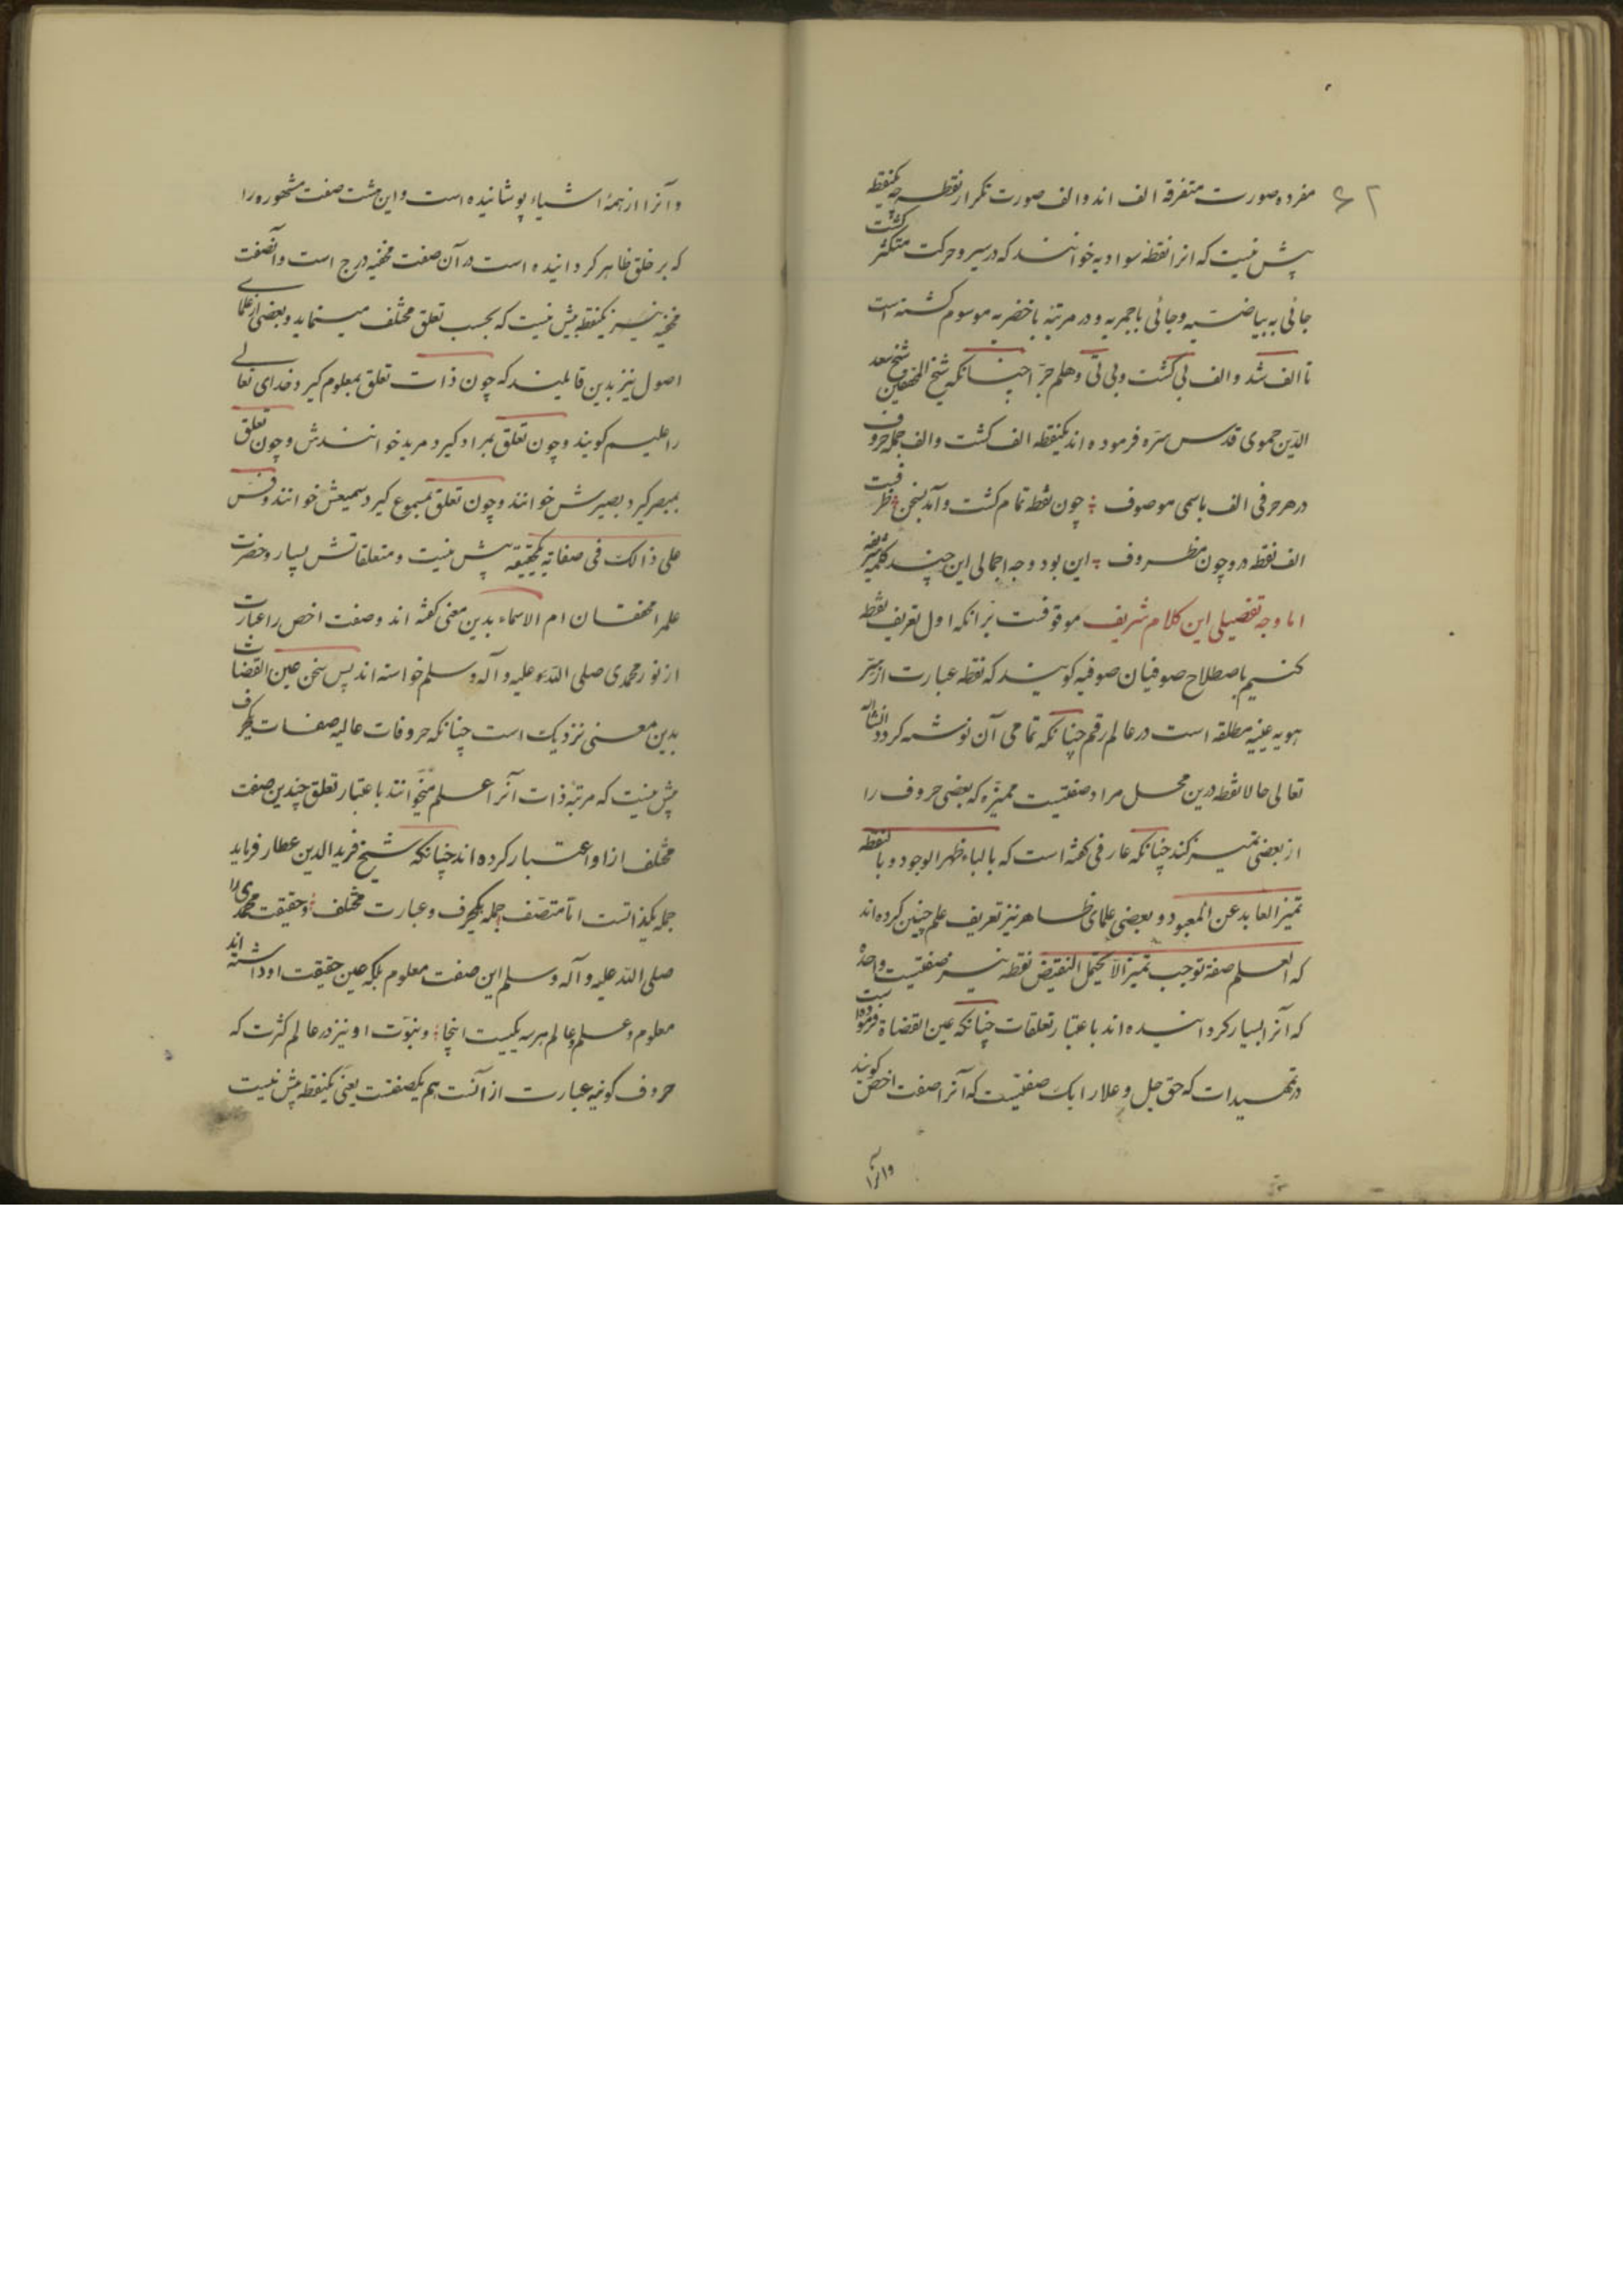 ۶۲
مفرده صورت متفرقهٔ الف اند و الف صورت تکرار نقطه چه یکنقطه
پیش نیست که انرا نقطهٔ سوادیه خوانند که در سیر و حرکت متکثر کشت
جائی به بیاضیه و جائی باحمریه و در مرتبهٔ باخضریه موسوم کشته است
تا الف شد و الف بی کشت و بی تی و هلم جرّا چنانکه شیخ المحققین شیخ سعد
الدّین حموی قدس سرّه فرموده اند یکنقطه الف کشت و الف جمله حروف
در هر حرفی الف باسمی موصوف چون نقطه تمام کشت و آمد بسخن ظرفیت
الف نقطه درو چون مظروف این بود وجه اجمالی این چند کلمهٔ شریفه
اما وجه تفصیلی این کلام شریف موقوفست برانکه اول تعریف نقطه
کنیم باصطلاح صوفیان صوفیه کویند که نقطه عبارت از سرّ
هویه غیبیه مطلقه است در عالم رقم چنانکه تمامی آن نوشته کردد انشاالله
تعالی حالا نقطه درین محل مراد صفتیست ممیزه که بعضی حروف را
از بعضی تمییز کند چنانکه عارفی کفته است که بالباء ظهر الوجود و بالنقطه
تمیز العابد عن المعبود و بعضی علمای ظاهر نیز تعریف علم چنین کرده اند
که العلم صفة توجب تمیزا لا یحتمل النقیض نقطه نیز صفتیست واحده
که آنرا بسیار کردانیده اند باعتبار تعلقات چنانکه عین القضاة فرموده است
در تمهیدات که حق جل و علا را یک صفتیست که آنرا صفت اخص کویند
وانرا
و آنرا از همهٔ اشیاء پوشانیده است و این هشت صفت مشهوره را
که بر خلق ظاهر کردانیده است در آن صفت مخفیه درج است و آنصفت
مخفیه نیز یکنقطه بیش نیست که بحسب تعلق مختلف مینماید و بعضی از علمای
اصول نیز بدین قایلند که چون ذات تعلق بمعلوم کیرد خدای تعالی
را علیم کویند و چون تعلق بمراد کیرد مرید خوانندش و چون تعلق
بمبصر کیرد بصیرش خوانند و چون تعلق بمسموع کیرد سمیعش خوانند و قس
علی ذالک فی صفاته یکحقیقه پیش نیست و متعلقاتش بسیار و حضرت
علم را محققان ام الاسماء بدین معنی کفته اند و صفت اخص را عبارت
از نور محمدی صلی الله علیه و آله و سلم خواسته اند پس سخن عین القضات
بدین معنی نزدیک است چنانکه حروفات عالیه صفات یکحرف
پیش نیست که مرتبهٔ ذات آنرا علم میخوانند باعتبار تعلق چندین صفت
مختلف ازا و اعتبار کرده اند چنانکه شیخ فرید الدین عطار فرماید
جمله یکذاتست امّا متصف جمله یکحرف و عبارت مختلف و حقیقت محمدی را
صلی الله علیه و آله و سلم این صفت معلوم بلکه عین حقیقت او داشته اند
معلوم و علم و عالم هر سه یکیست اینجا و نبوّت او نیز در عالم کثرت که
حروف کونیه عبارت از آنست هم یکصفتست یعنی یکنقطه پیش نیست